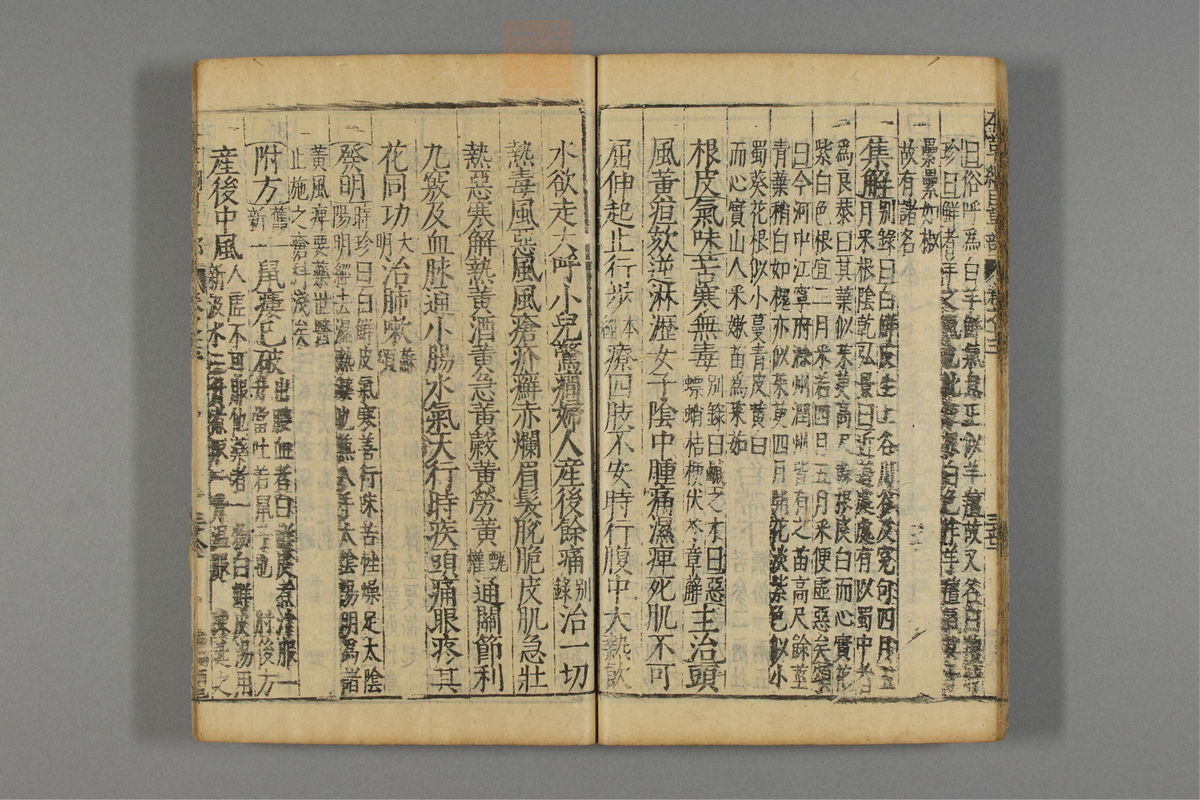 曰俗呼爲白羊鮮氣息正似羊羶故又名白羶
珍曰鮮者羊之氣也此草根白色作羊羶氣
纍纍如椒
故有諸名
集解别錄曰白鮮皮生上谷川谷及冤句四月五
月采根陰乾弘景曰近道處處有以蜀中者
爲良恭曰其葉似茱萸高尺餘根皮白而心實花
紫白色根宜二月采若四月五月采便虛惡矣頌
曰今河中江寧府滁州潤州皆有之苗高尺餘莖
青葉稍白如槐亦似茱萸四月開花淡紫色似小
蜀葵花根似小蔓青皮黄白
而心實山人采嫩苗爲菜茹
根皮氣味苦寒無毒别錄曰鹹之才曰惡
螵蛸桔梗伏苓萆薢主治頭
風黄疸欬逆淋瀝女子隂中腫痛濕痺死肌不可
屈伸起止行步本經療四肢不安時行腹中大熱飲
水欲走大呼小兒驚癎婦人産後餘痛别錄治一切
熱毒風惡風風瘡疥癬赤爛眉髮脫脆皮肌急壯
熱惡寒解熱黄酒黄急黄穀黄勞黄甄權通關節利
九竅及血脉通小腸水氣天行時疾頭痛眼疼其
花同功大明治肺嗽蘇頌
發明時珍曰白鮮皮氣寒善行味苦性燥足太隂
陽明經去濕熱藥也兼入手太隂陽明爲諸
黄風痺要藥世醫
止施之瘡科淺矣
附方舊一新一鼠瘻已破出膿血者白鮮皮煮汁服一
升當吐若鼠子也肘後方
産後中風人虛不可服他藥者一物白鮮皮湯用
新汲水三升煮取一升溫服